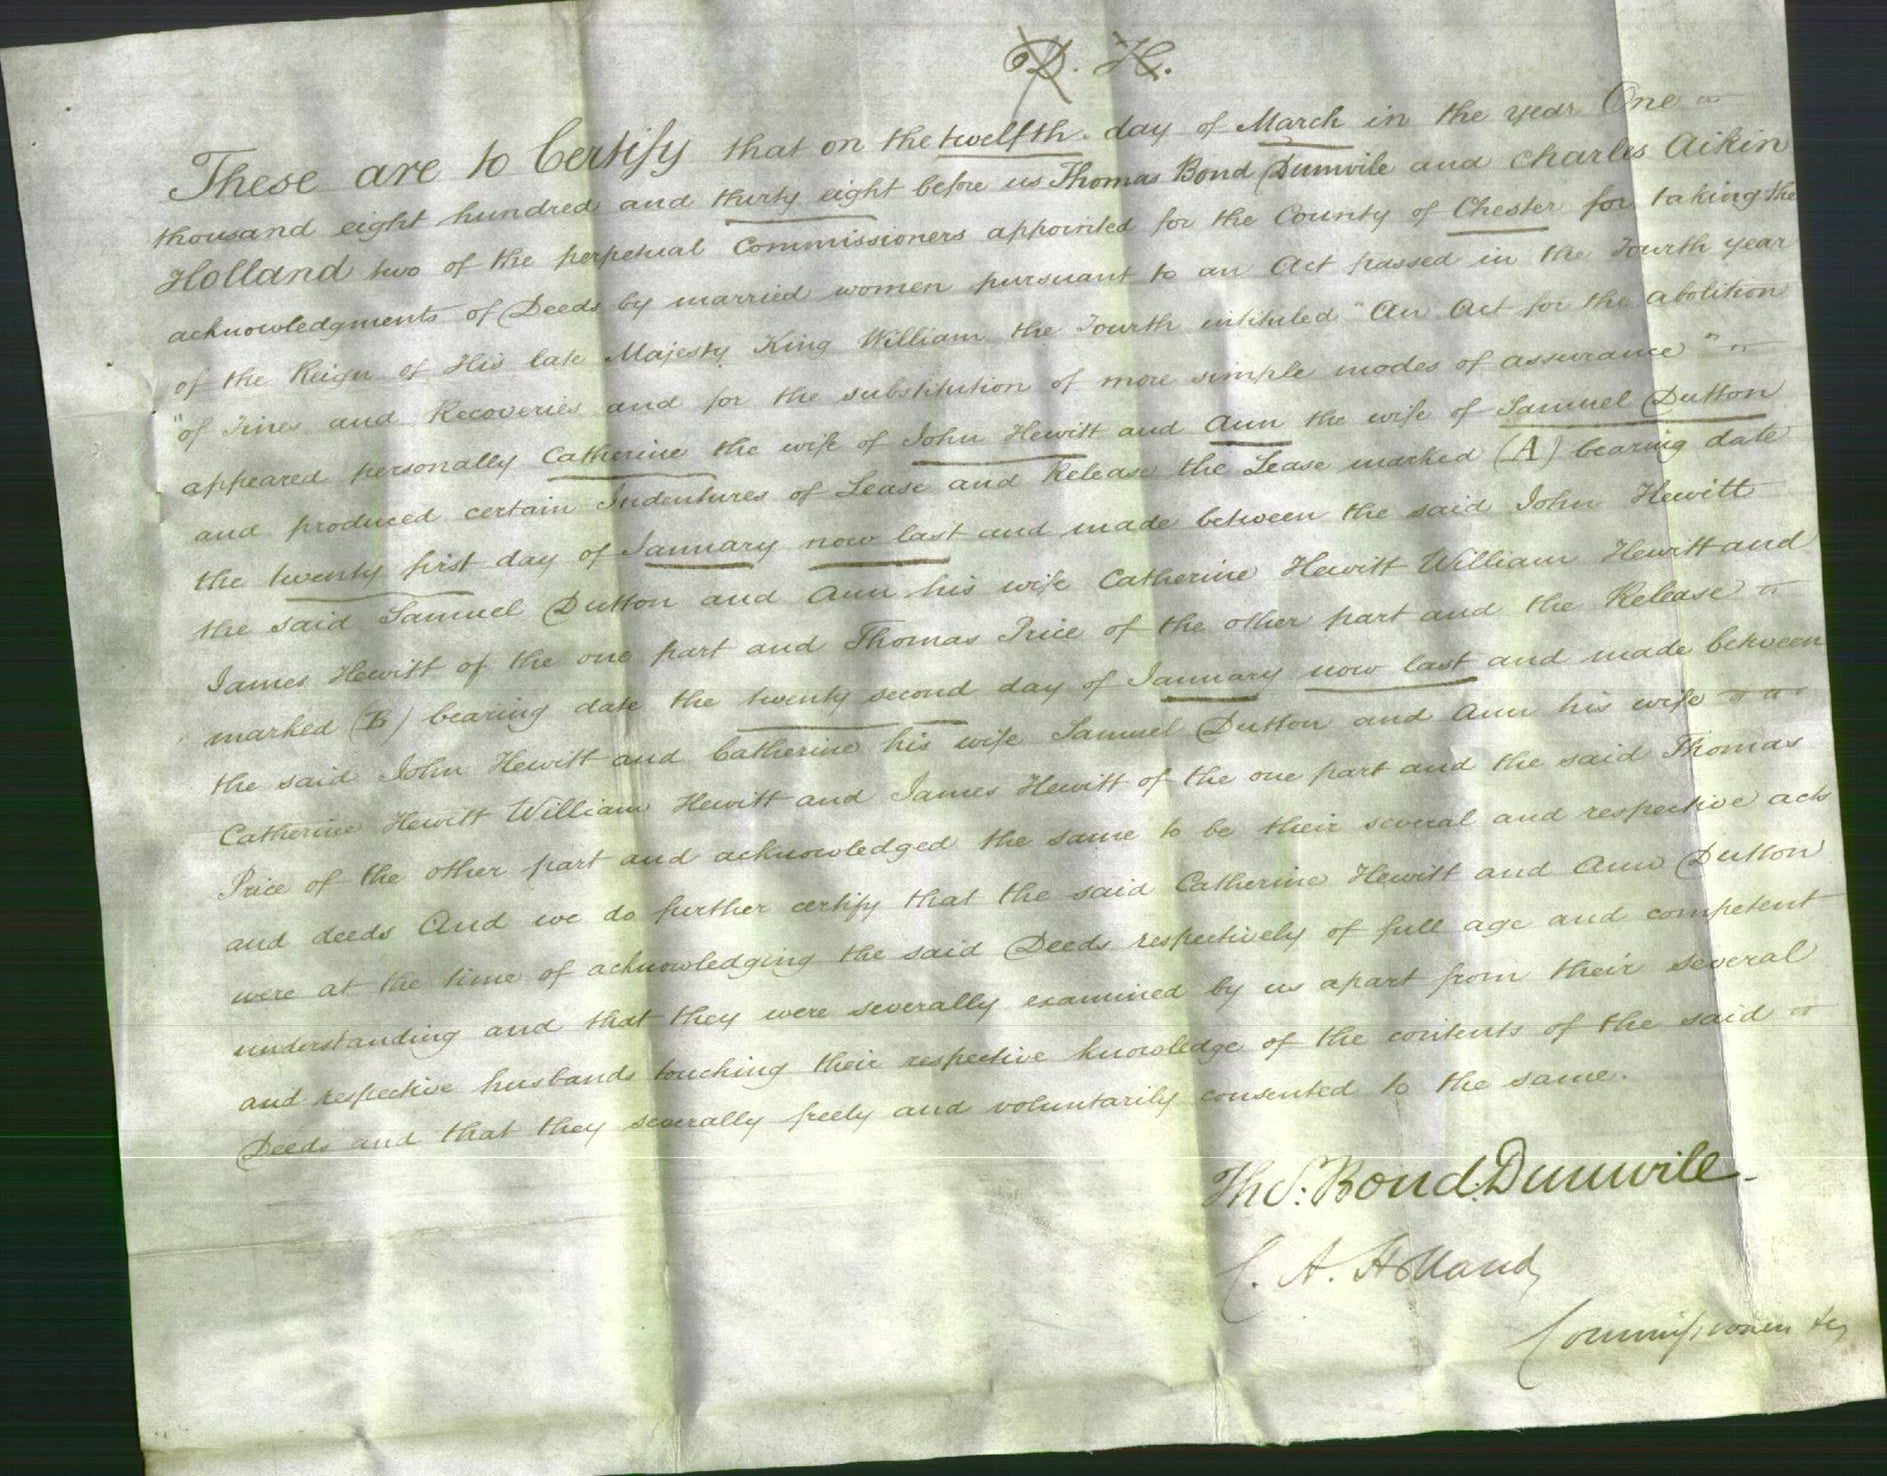 D. H.
These are to Certify that on the twelfth day of March in the year One
thousand eight hundred and thirty eight before us Thomas Bond Dumvile and Charles Aikin
Holland two of the perpetual Commissioners appointed for the County of Chester for taking the
acknowledgments of Deeds by married women pursuant to an Act passed in the Fourth year
of the Reign of His late Majesty King William the Fourth intituled "An Act for the abolition
"of Fines and Recoveries and for the substitution of more simple modes of assurance"
appeared personally Catherine the wife of John Hewitt and Ann the wife of Samuel Dutton
and produced certain Indentures of Lease and Release the Lease marked (A) bearing date
the twenty first day of January now last and made between the said John Hewitt
the said Samuel Dutton and Ann his wife Catherine Hewitt William Hewitt and
James Hewitt of the one part and Thomas Price of the other part and the Release
marked (B) bearing date the twenty second day of January now last and made between
the said John Hewitt and Catherine his wife Samuel Dutton and Ann his wife
Catherine Hewitt William Hewitt and James Hewitt of the one part and the said Thomas
Price of the other part and acknowledged the same to be their several and respective acts
and deeds And we do further certify that the said Catherine Hewitt and Ann Dutton
were at the time of acknowledging the said Deeds respectively of full age and competent
understanding and that they were severally examined by us apart from their several
and respective husbands touching their respective knowledge of the contents of the said
Deeds and that they severally freely and voluntarily consented to the same.
Ths. Bond Dumvile
C. A. Holland